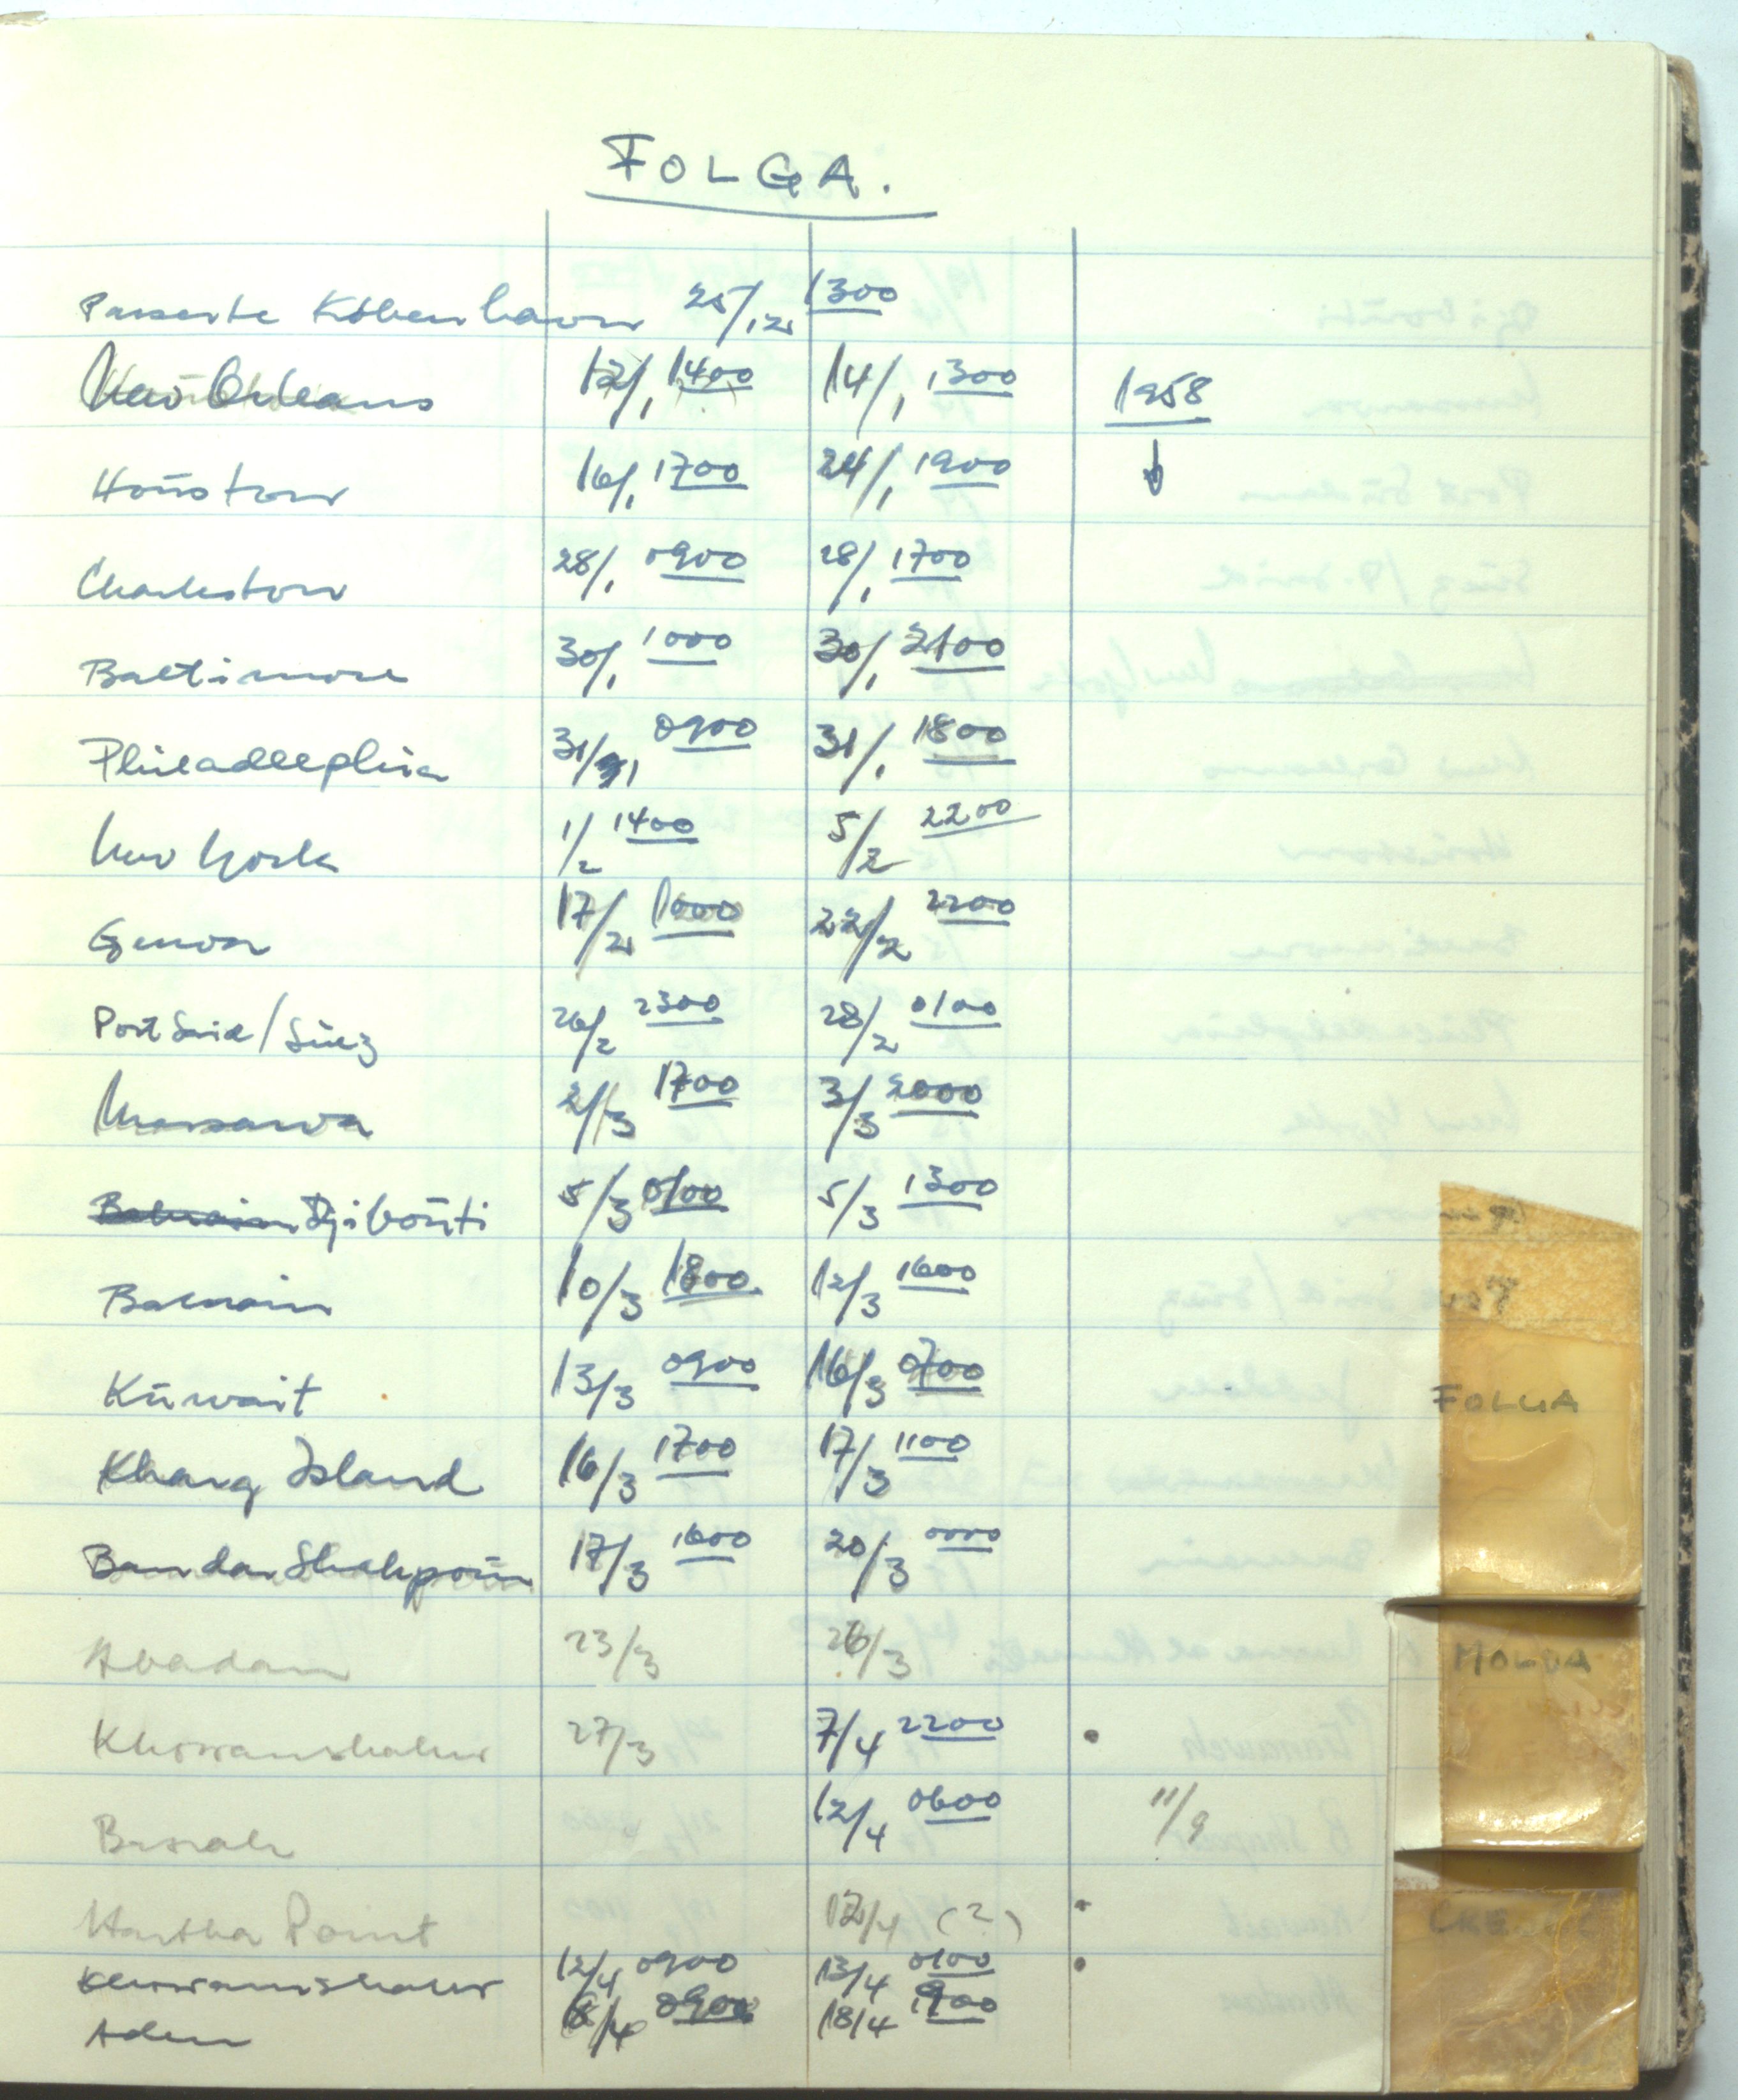 FOLGA.
Passerte København 25/12 1300
New Orleans 12/1 1400 14/1 1300 1958
Houston 16/1 1700 24/1 1900 ↓
Charleston 28/1 0900 28/1 1700
Baltimore 30/1 1000 30/1 2100
Philadelphia 31/1 0900 31/1 1800
New York 1/2 1400 5/2 2200
Genoa 17/2 1000 22/2 2200
Port Said/Suez 26/2 2300 28/2 0100
Massawa 2/3 1700 3/3 2000
Bahrain Djibouti 5/3 0100 5/3 1300
Bahrain 10/3 1800 12/3 1600
Kuwait 13/3 0900 16/3 0700
Kharg Island 16/3 1700 17/3 1100
Bandar Shahpour 17/3 1600 20/3 0000
Abadan 23/3 26/3
Khorramshahr 27/3 7/4 2200
Basrah 12/4 0600 11/9
Hartha Point 12/4 (?)
Khorramshahr 12/4 0900 13/4 0100
Aden 18/4 0900 18/4 1900
FOLGA
MOLDA